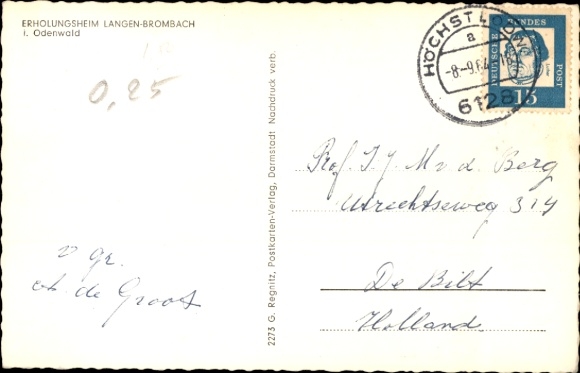 ERHOLUNGSHEIM LANGEN-BROMBACH
i. Odenwald
0,25
v gr.
A. de Groot
2273 G. Regnitz, Postkarten-Verlag, Darmstadt Nachdruck verb.
HÖCHST
a
-8.-9.64
6128
DEUTSCHE BUNDESPOST
15
Prof. I. J. M. v. d. Berg
Utrechtseweg 314
De Bilt
Holland